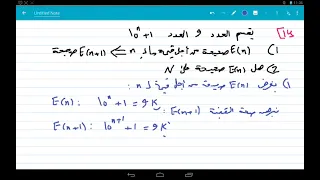 Untitled Note
11:26
يقسم العدد 9 العدد 10ⁿ+1
1) E(n) صحيحة من أجل قيمة ما لـ n ⇒ E(n+1) صحيحة
2) هل E(n) صحيحة على N
1) بفرض E(n) صحيحة من أجل قيمة لـ n :
E(n): 10ⁿ+1 = 9K
نبرهن صحة القضية E(n+1) :
E(n+1): 10ⁿ⁺¹+1 = 9K'